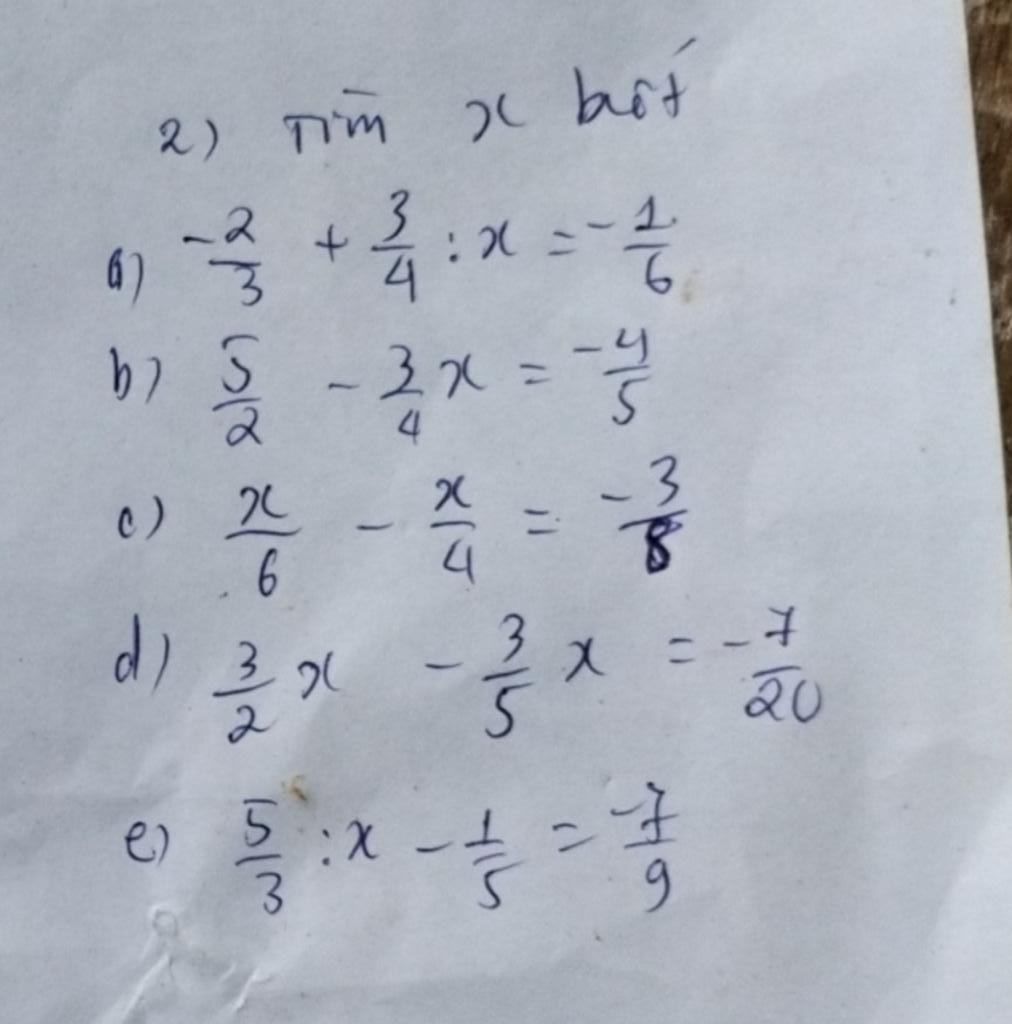 2) Tìm x biết
a) -2/3 + 3/4 : x = -1/6
b) 5/2 - 3/4 x = -4/5
c) x/6 - x/4 = -3/8
d) 3/2 x - 3/5 x = -7/20
e) 5/3 : x - 1/5 = -7/9